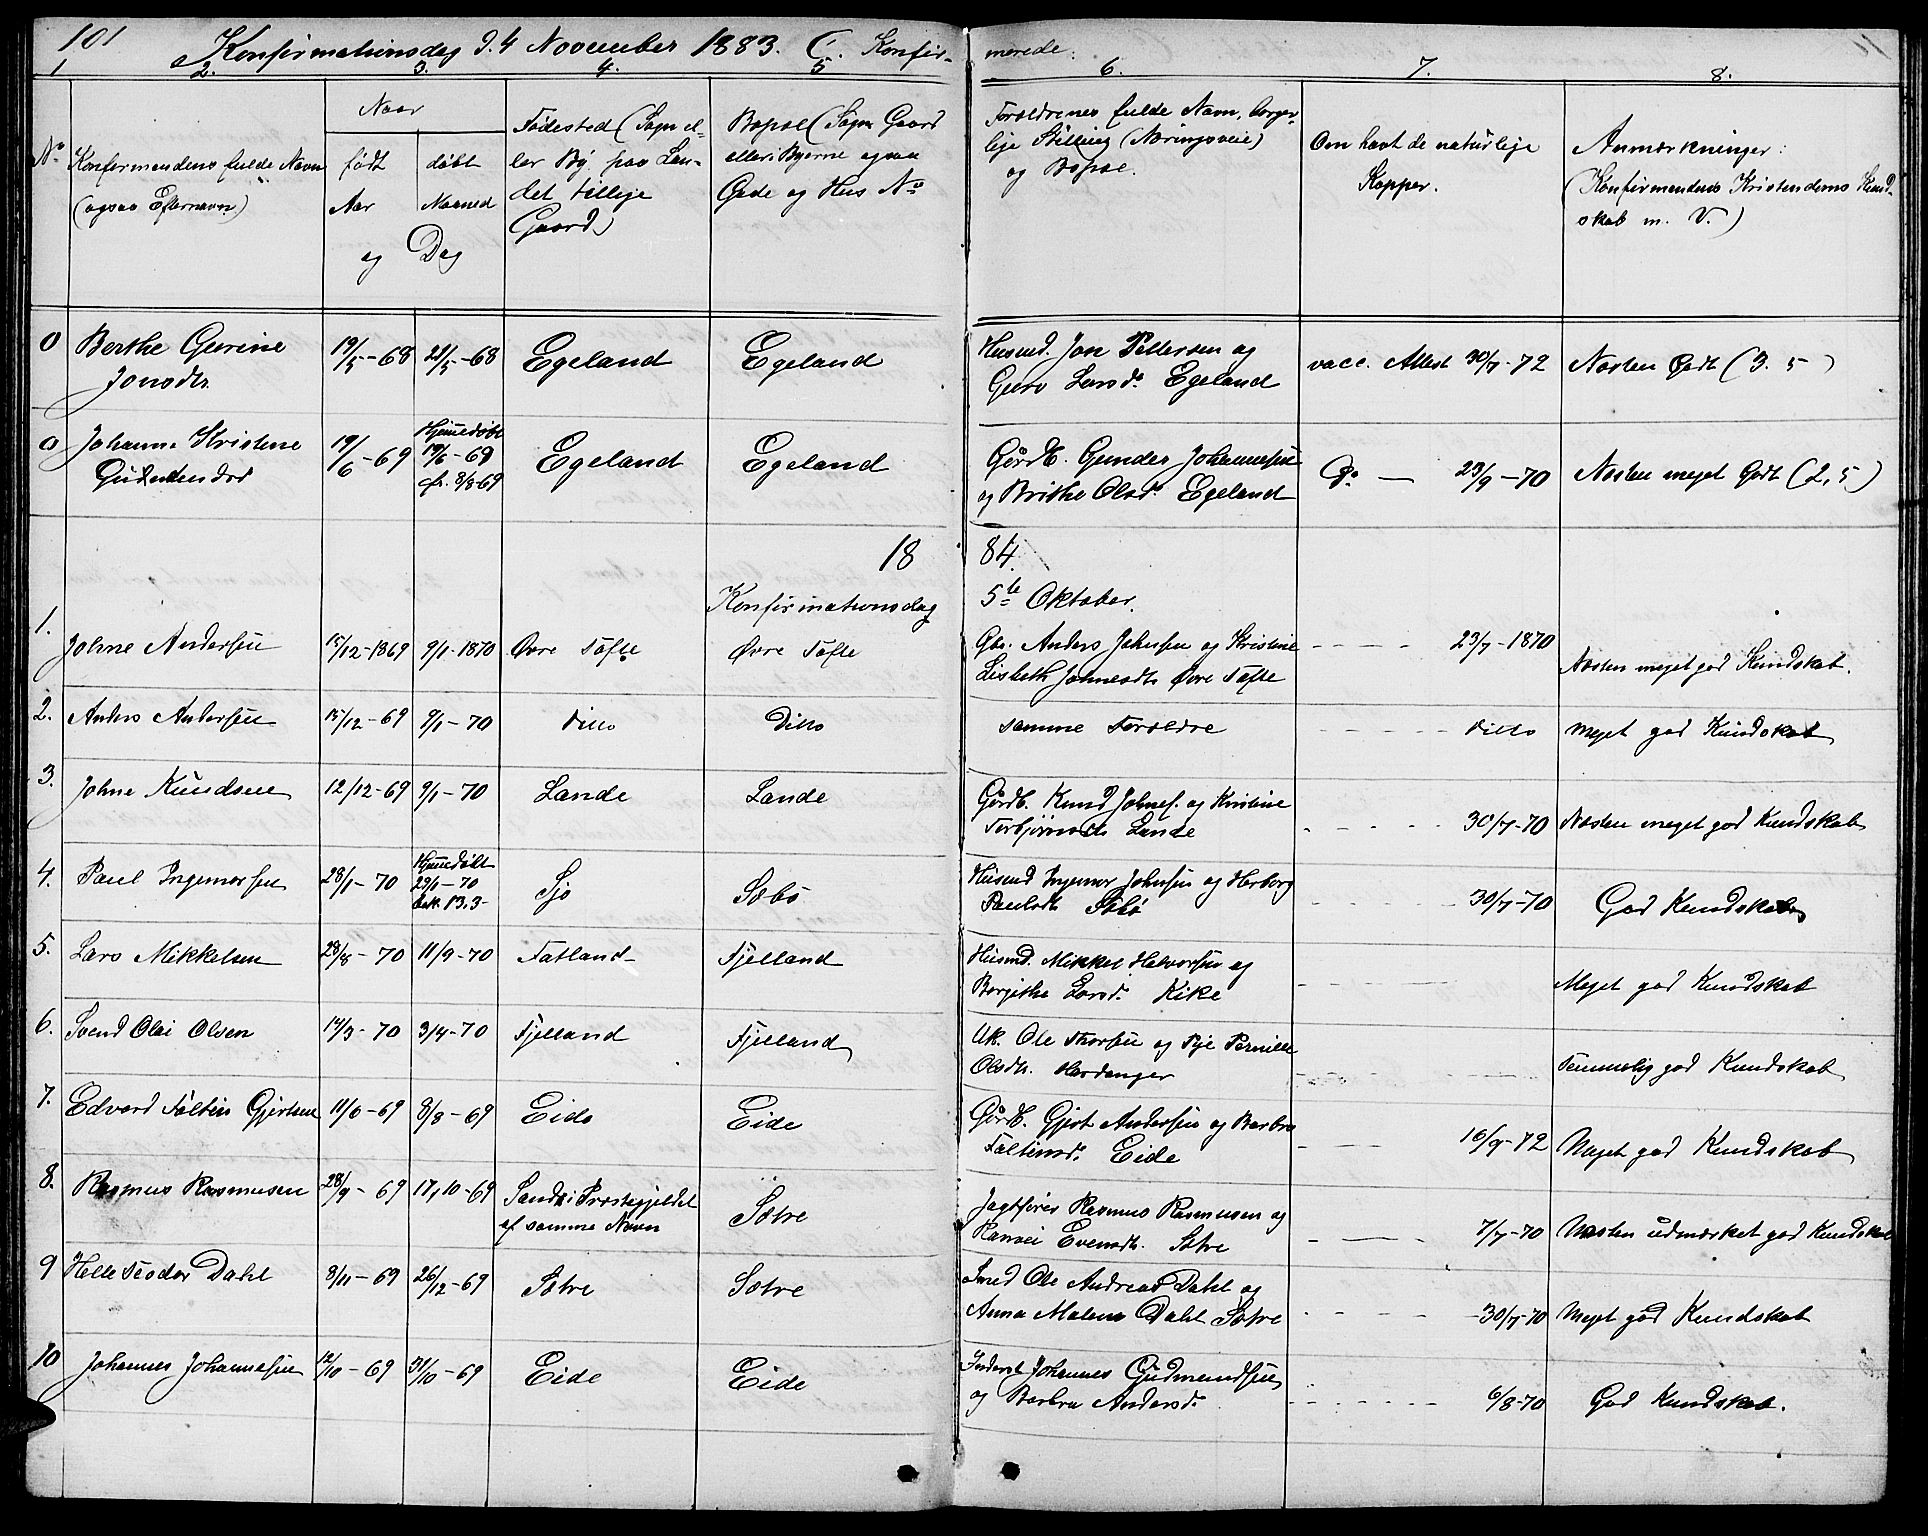 101 Konfirmationsdag d. 4 November 1883. C. Konfir- merede.
1 2. 3. 4. 5 6. 7. 8.
No Konfirmandens fulde Navn (ogsaa Efternavn)
Naar
født Aar
døbt Maaned
og Dag
Fødested (Sogn el-
ler By paa Lan-
det tillige
Gaard)
Bopæl (Sogn Gaard
eller i Byerne ogsaa
Gade og Hus No
Forældrenes fulde Navn, borger-
lige Stilling (Næringsveie)
og Bopæl.
Om havt de naturlige
Kopper.
Anmærkninger:
(Konfirmandens Kristendoms Kund-
skab m. V.)
0 Berthe Gurine Jonsdtr. 19/5-68 21/5-68 Egeland Egeland Husmd. Jon Pettersen og Guro Larsd. Egeland vacc. Attest 30/7-72 Næsten Godt (3. 5)
0 Johanne Kristine 19/6-69 Hjemedøbt 19/6-69 8/8-69 Egeland Egeland Gårdb. Gunder Johannesen og Brithe Olsd. Egeland Do — 23/9-70 Næsten meget Godt (2,5)
18 84.
Konfirmationsdag 5te Oktober.
1. Johne Andersen 15/12-1869 9/1-1870 Øvre Tofte Øvre Tofte Gbr. Anders Johnsen og Kristine Lisbeth Johnesdtr Øvre Tofte 23/7-1870 Næsten meget god Kundskab.
2. Anders Andersen 15/12-69 9/1-70 ditto Ditto samme Forældre ditto Meget god Kundskab
3. Johne Knudsen 12/12-69 9/1-70 Lande Lande Gårdb. Knud Johnes. og Kristine Torbjørnsdtr Lande 30/7-70 Næsten meget god Kundskab
4. Paul Ingemorsen 28/1-70 Hjemedøbt 29/1-70 bek. 13.3- Sjo Sæbø Husmd Ingemor Johnsen og Herborg Paulsdtr Sæbø 30/7-70 God Kundskab
5. Lars Mikkelsen 28/8-70 11/9-70 Fatland Fjelland Husmd. Mikkel Halvorsen og Borgithe Larsd. Kike Meget god Kundskab
6. Svend Olai Olsen 14/3-70 3/4-70 Fjelland Fjelland Uk. Ole Thorsen og Pige Pernille Olsdtr. Hardanger Temmelig god Kundskab
7. Edvard Faltin Gjertsen 11/6-69 8/8-69 Eide Eide Gårdb. Gjert Andersen og Barbro Faltinsd. Eide 16/9-72 Meget god Kundskab
8. Rasmus Rasmusen 28/9-69 17/10-69 Sande i Præstegjeldet af samme Navn Sætre Jagtfører Rasmus Rasmusen og Ranvei Evensdtr. Sætre 7/7-70 Næsten udmærket god Kundskab
9 Helle Teodor Dahl 3/11-69 26/12-69 Sætre Sætre Smed Ole Andreas Dahl og Anna Malene Dahl Sætre 30/7-70 Meget god Kundskab
10 Johannes Johannesen 12/10-69 31/10-69 Eide Eide Johannes Gudmundsen og Barbru Andersd. 6/8-70 God Kundskab.